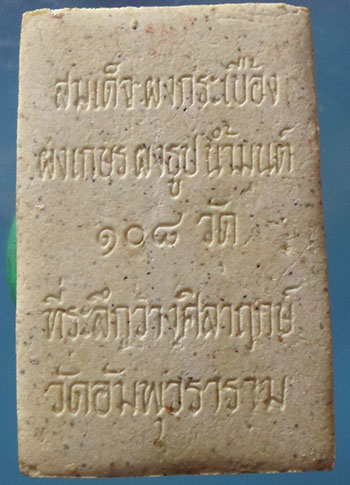 สมเด็จผงกระเบื้อง
ผงเกษรผงธูปน้ำมนต์
๑๐๘ วัด
ที่ระลึกวางศิลาฤกษ์
วัดอัมพุวราราม